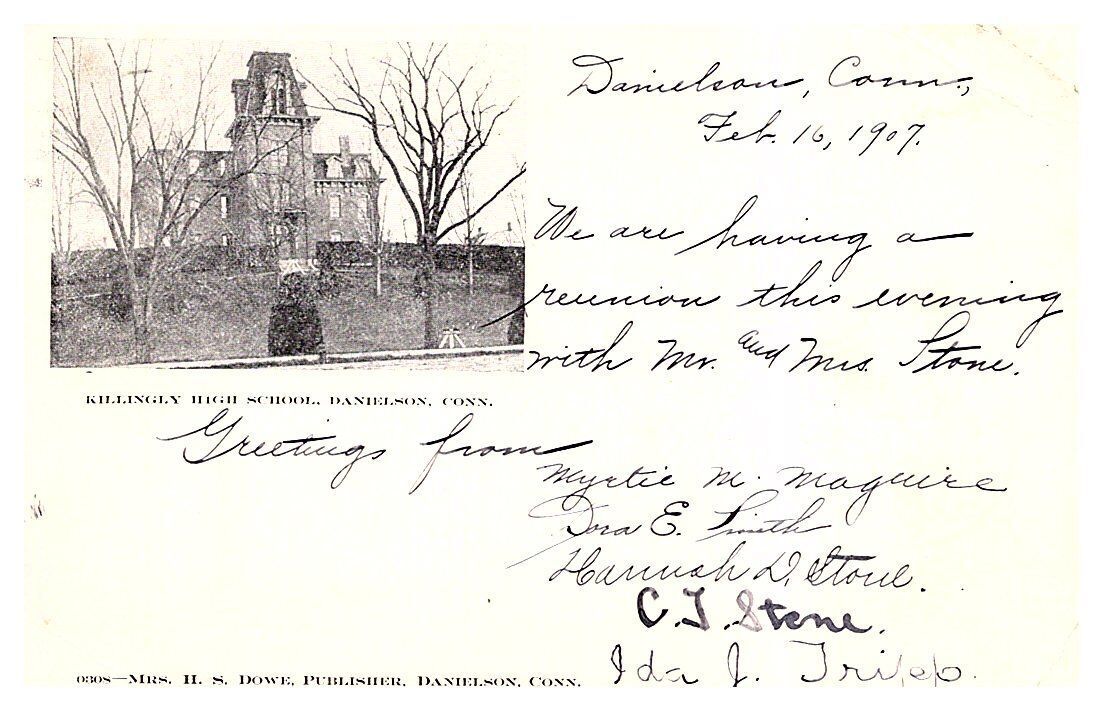 Danielson, Conn.,
Feb. 16, 1907.
We are having a
reunion this evening
with Mr. and Mrs. Stone.
KILLINGLY HIGH SCHOOL, DANIELSON, CONN.
Greetings from
Myrtie M. Maguire
Dora E. Smith
Hannah D. Stone.
C. T. Stone.
Ida J. Tripp.
0308—MRS. H. S. DOWE, PUBLISHER, DANIELSON, CONN.